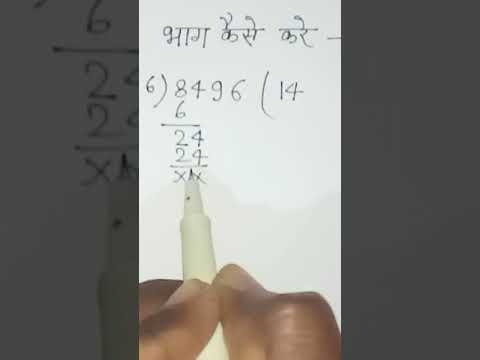 भाग कैसे करे -
6) 8496 ( 14
6
24
24
xx